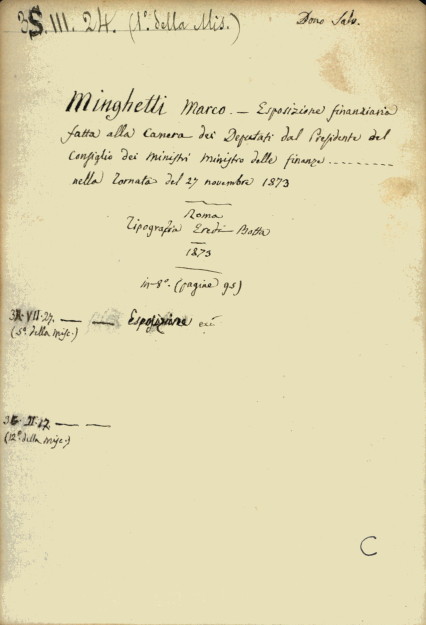 3S.III.24. (1º della Mis.)
Dono Salv.
Minghetti Marco. — Esposizione finanziaria
fatta alla Camera dei Deputati dal Presidente del
Consiglio dei Ministri Ministro delle finanze ..........
nella tornata del 27 novembre 1873
Roma
Tipografia Eredi Botta
1873
in-8º. (pagine 95)
VII.27. — — Esposizione ecc
(5º della misc.)
II.17. — —
(12º della misc.)
C